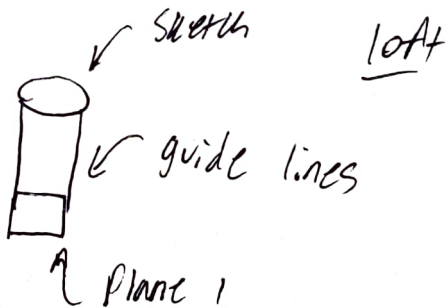 sketch
loft
guide lines
Plane 1